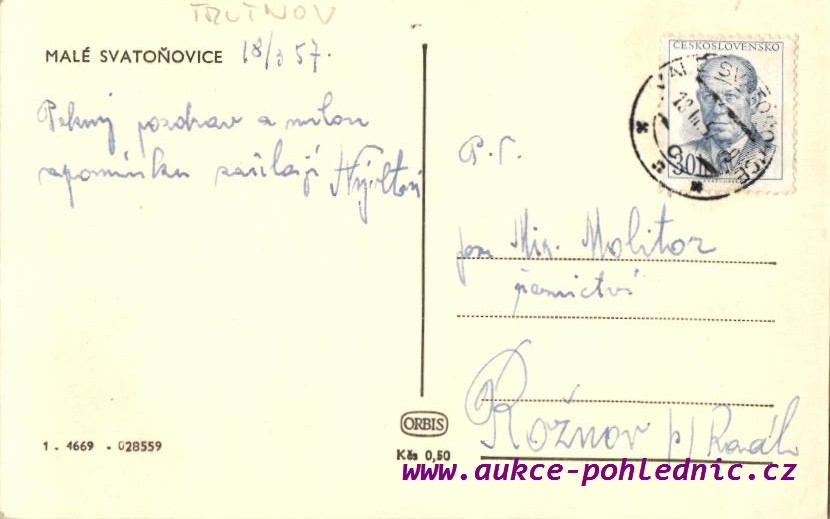 TRUTNOV
MALÉ SVATOŇOVICE 18/3 57.
Pekný pozdrav a milou
vzpomínku zasílají Nývltovi
ČESKOSLOVENSKO
30
P.T.
pan Mir. Molitor
Rožnov p/Radh
ORBIS
Kčs 0,50
1 - 4669 - 028559
www.aukce-pohlednic.cz